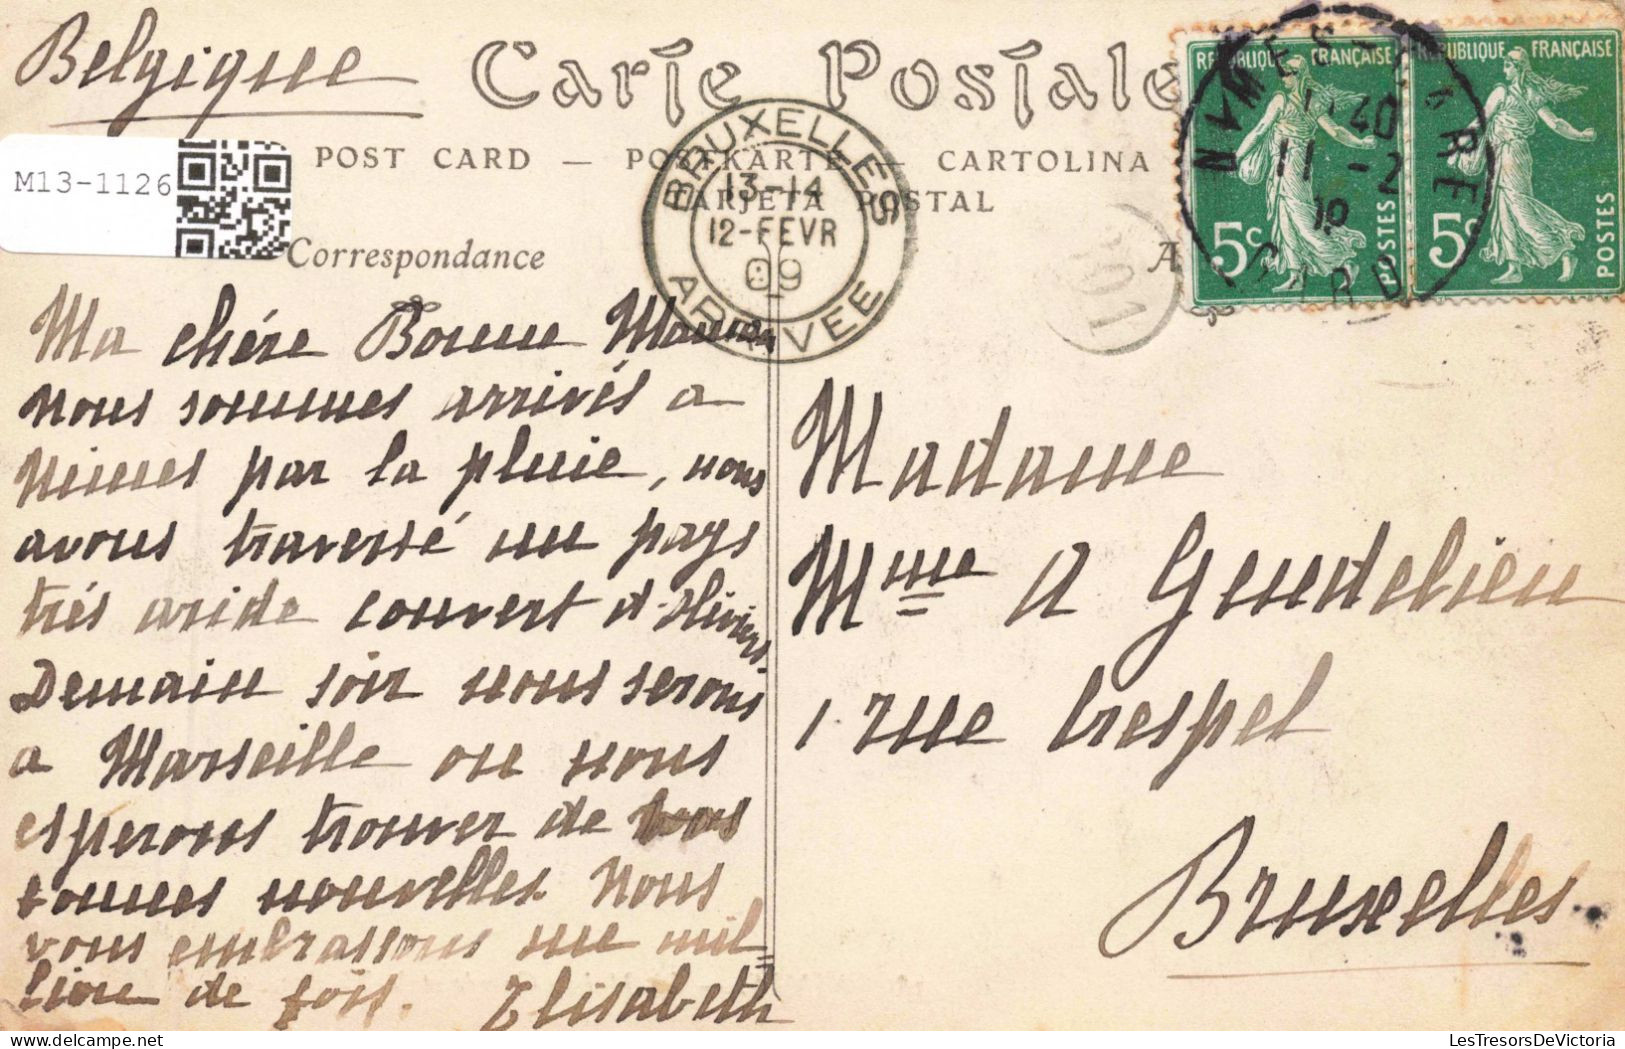 Belgique
Carte Postale
POST CARD — POSTKARTE — CARTOLINA
TARJETA POSTAL
M13-1126
Correspondance
BRUXELLES
13-14
12-FEVR
09
ARRIVEE
RÉPUBLIQUE FRANÇAISE
5c POSTES
RÉPUBLIQUE FRANÇAISE
5c POSTES
NIMES GARE
11 40
11 -2
GARD
Ma chére Bonne Maman
nous sommes arrivés a
Nimes par la pluie, nous
avons traversé un pays
trés aride couvert d'oliviers.
Demain soir nous serons
a Marseille ou nous
esperons trouver de
bonnes nouvelles. Nous
vous embrassons un mil=
lion de fois. Elisabeth
Madame
Mme A Gendelien
1 rue Crespel
Bruxelles.
LesTresorsDeVictoria